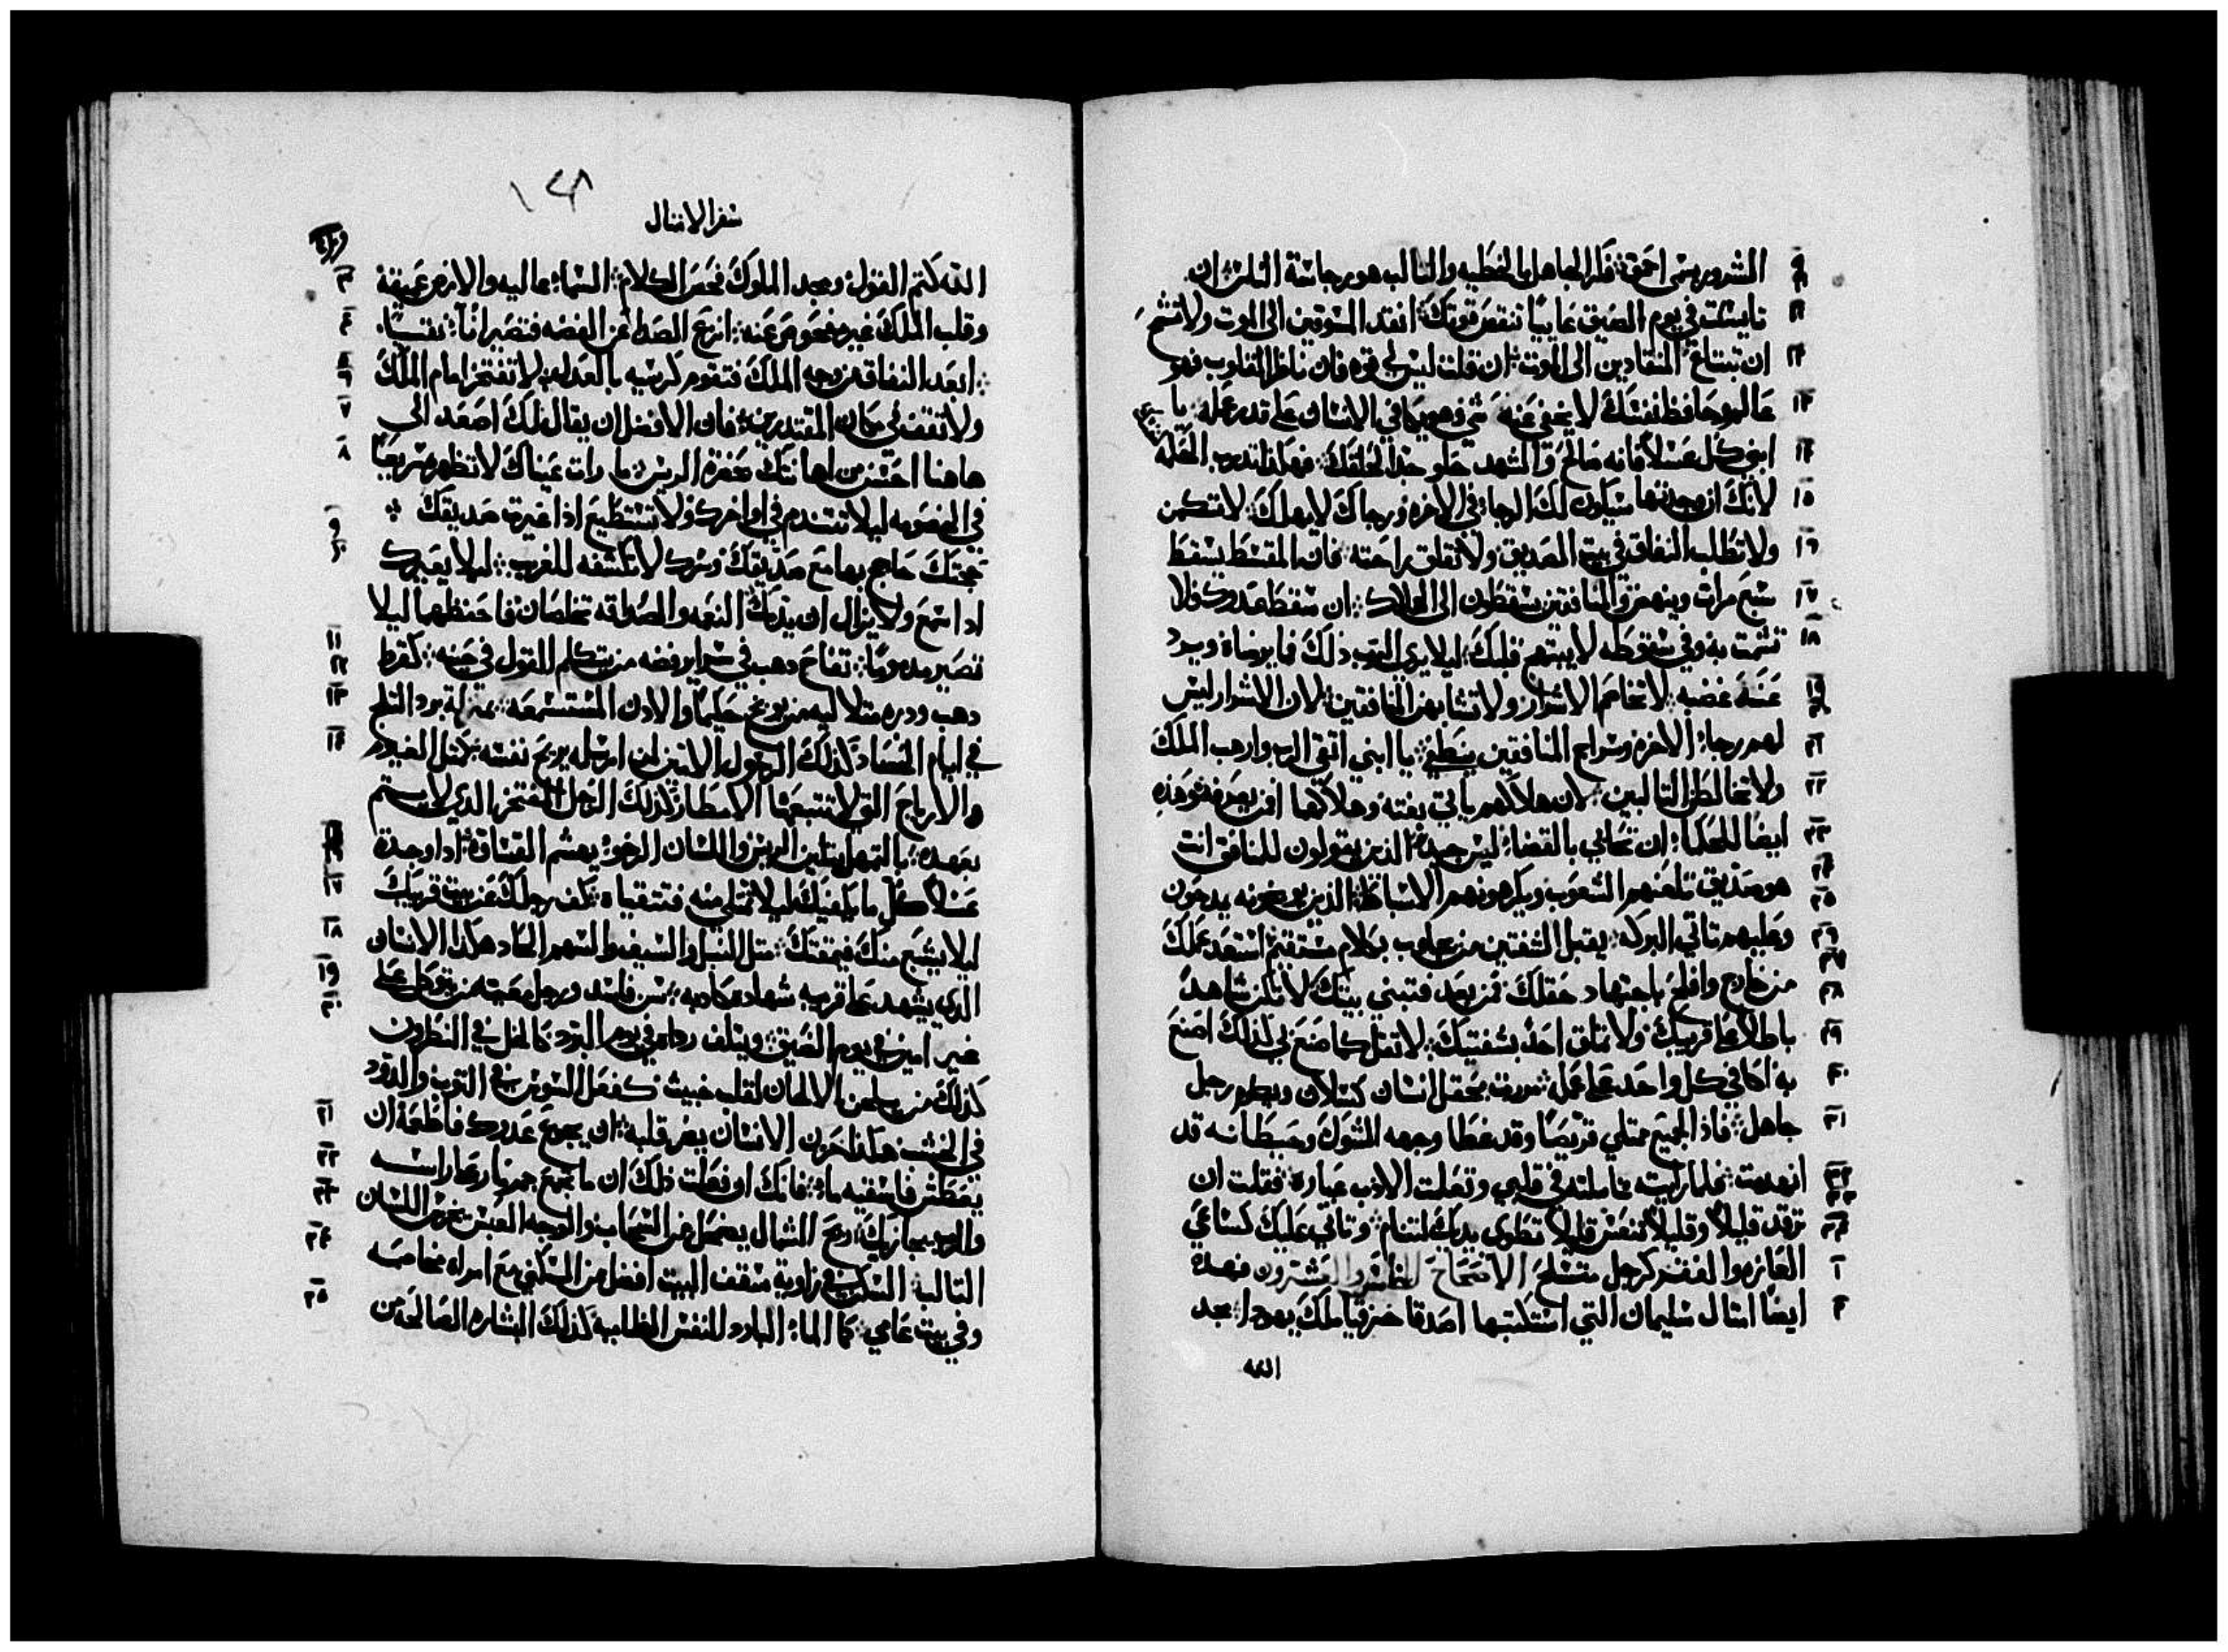 الشرور يسمى احمق فكر الجاهل بالخطيه والثالب هو رجاسة الناس ان
تايست في يوم الضيق عاييًا تنقص قوتك انقد المسوقين الى الموت ولا تشح
ان تبتاع المنقادين الى الموت ان قلت ليس لي قوه فان ناظر القلوب فهو
عالم وحافظ نفسك لا يخفى عنه شي فهو يكافي الانسان على قدر عمله يا
ابني كل عسلًا فانه صالح والشهد حلو جدًا لحلقك فهكذا تدرب الحكمه
لانك اذ وجدتها سيكون لك الرجاء في الاخره ورجاك لا يهلك لا تكمن
ولا تطلب النفاق في بيت الصديق ولا تقلق راحته فان المقسط يسقط
سبع مرات وينهض والمنافقين يسقطون الى الهلاك ان سقط عدوك فلا
تشمت به وفي سقوطه لا يبتهج قلبك ليلا يرى الرب ذلك فلا يرضاه ويرد
عنه غضبه لا تخاصم الاشرار ولا تتشابه المنافقين لان الاشرار ليس
لهم رجاء الاخره وسراج المنافقين ينطفي يا ابني اتقي الرب وارهب الملك
ولا تخالط الثالبين لان هلاكهم ياتي بغته وهلاكهما من يعرفه وهذه
ايضًا للحكما ان تحابي بالقضاء ليس جيد الذين يقولون للمنافق انت
هو صديق تلعنهم الشعوب ويكرهونهم الاسباط الذين يوبخونه يمدحون
وعليهم تاتي البركه يقبل الشفتين من يجاوب بكلام مستقيم استعد عملك
من خارج وافلح باجتهاد حقلك ثم بعد فتبني بيتك لا تكن شاهد
باطلًا على قريبك ولا تملق احد بشفتيك لا تقل كما صنع بي كذلك اصنع
به اكافي كل واحد على عمله مررت بحقل انسان كسلان وبكرم رجل
جاهل فاذ الجميع ممتلي قريصًا وقد غطا وجهه الشوك وحيطانه قد
انهدمت فلما رايته تاملته في قلبي وتعلت الادب عباره فقلت ان
ترقد قليلًا وقليلًا تنعس قليلًا تطوى يديك لتنام وتاتي عليك كساعي
الفاقه والفقر كرجل متسلح الاصحاح الخامس والعشرون فهده
ايضًا امتال سليمان التي استكتبها اصدقا حزقيا ملك يهودا مجد
الله
سفر الامتال
الله كتم القول ومجد الملوك فحص الكلام السماء عاليه والارض عميقه
وقلب الملك غير مفحوص عنه انزع الصدا من الفضه فتصير اناء نقيًا
ابعد النفاق من وجه الملك فتقوم كرسيه بالعدل لا تفتخر امام الملك
ولا تقف في مكان المقتدرين فان الافضل ان يقال لك اصعد الى
هاهنا احسن من اهانتك بحضرة الريس ما رات عيناك لا تظهره سريعًا
في الخصومه ليلا تتندم في اواخرك ولا تستطيع اذا عيرت صديقك
حجتك حاجج بها مع صديقك وسرك لا تكشفه للغريب ليلا يعيرك
اد اسمع ولا يزال ان يدمك النعمه والصداقه تخلصان فاحفظهما ليلا
تصير مدمومًا تفاح دهب في سراير فضه من يتكلم القول في حينه كقرط
دهب ودره متلاليه من يوبخ حكيمًا والادن المستسمعه بمنزلة برد التلج
في ايام الحصاد كذلك الرسول الامين لمن ارسله يريح نفسه مثل الغيوم
والارياح التي لا تتبعها الامطار كذلك الرجل المفتخر الدي لا يتم
بعهده بالتمهل يتلين الريس واللسان الرخو يهشم القساوة ادا وجدة
عسلًا كل ما يكفيك ليلا تمتلي منه فتتقياه كف رجلك عن بيت قريبك
ليلا يشبع منك فيمقتك متل النبل والسيف والسهم الحاد هكذا الانسان
الذي يشهد على قريبه شهادة كاذبه سن فاسد ورجل تعبه من يتوكل على
غير امين في يوم الضيق ويتلف رداه في يوم البرد كالخل في النطرون
كذلك من يلحن الالحان لقلب خبيث كفعل السوس في التوب والدود
في الخشب هكذا حزن الانسان يضر قلبه ان يجوع عدوك فاطعمه ان
يعطش فاسقيه ماء فانك ان فعلت ذلك ان ما تجمع جمر نار على راسه
والرب يجازيك ريح الشمال يضمحل من السحاب والوجه العبس يخرس اللسان
التالب السكن في زاوية سقف البيت افضل من السكنى مع امراه مخاصمه
وفي بيت عامي كالماء البارد للنفس الظاميه كذلك البشاره الصالحه من